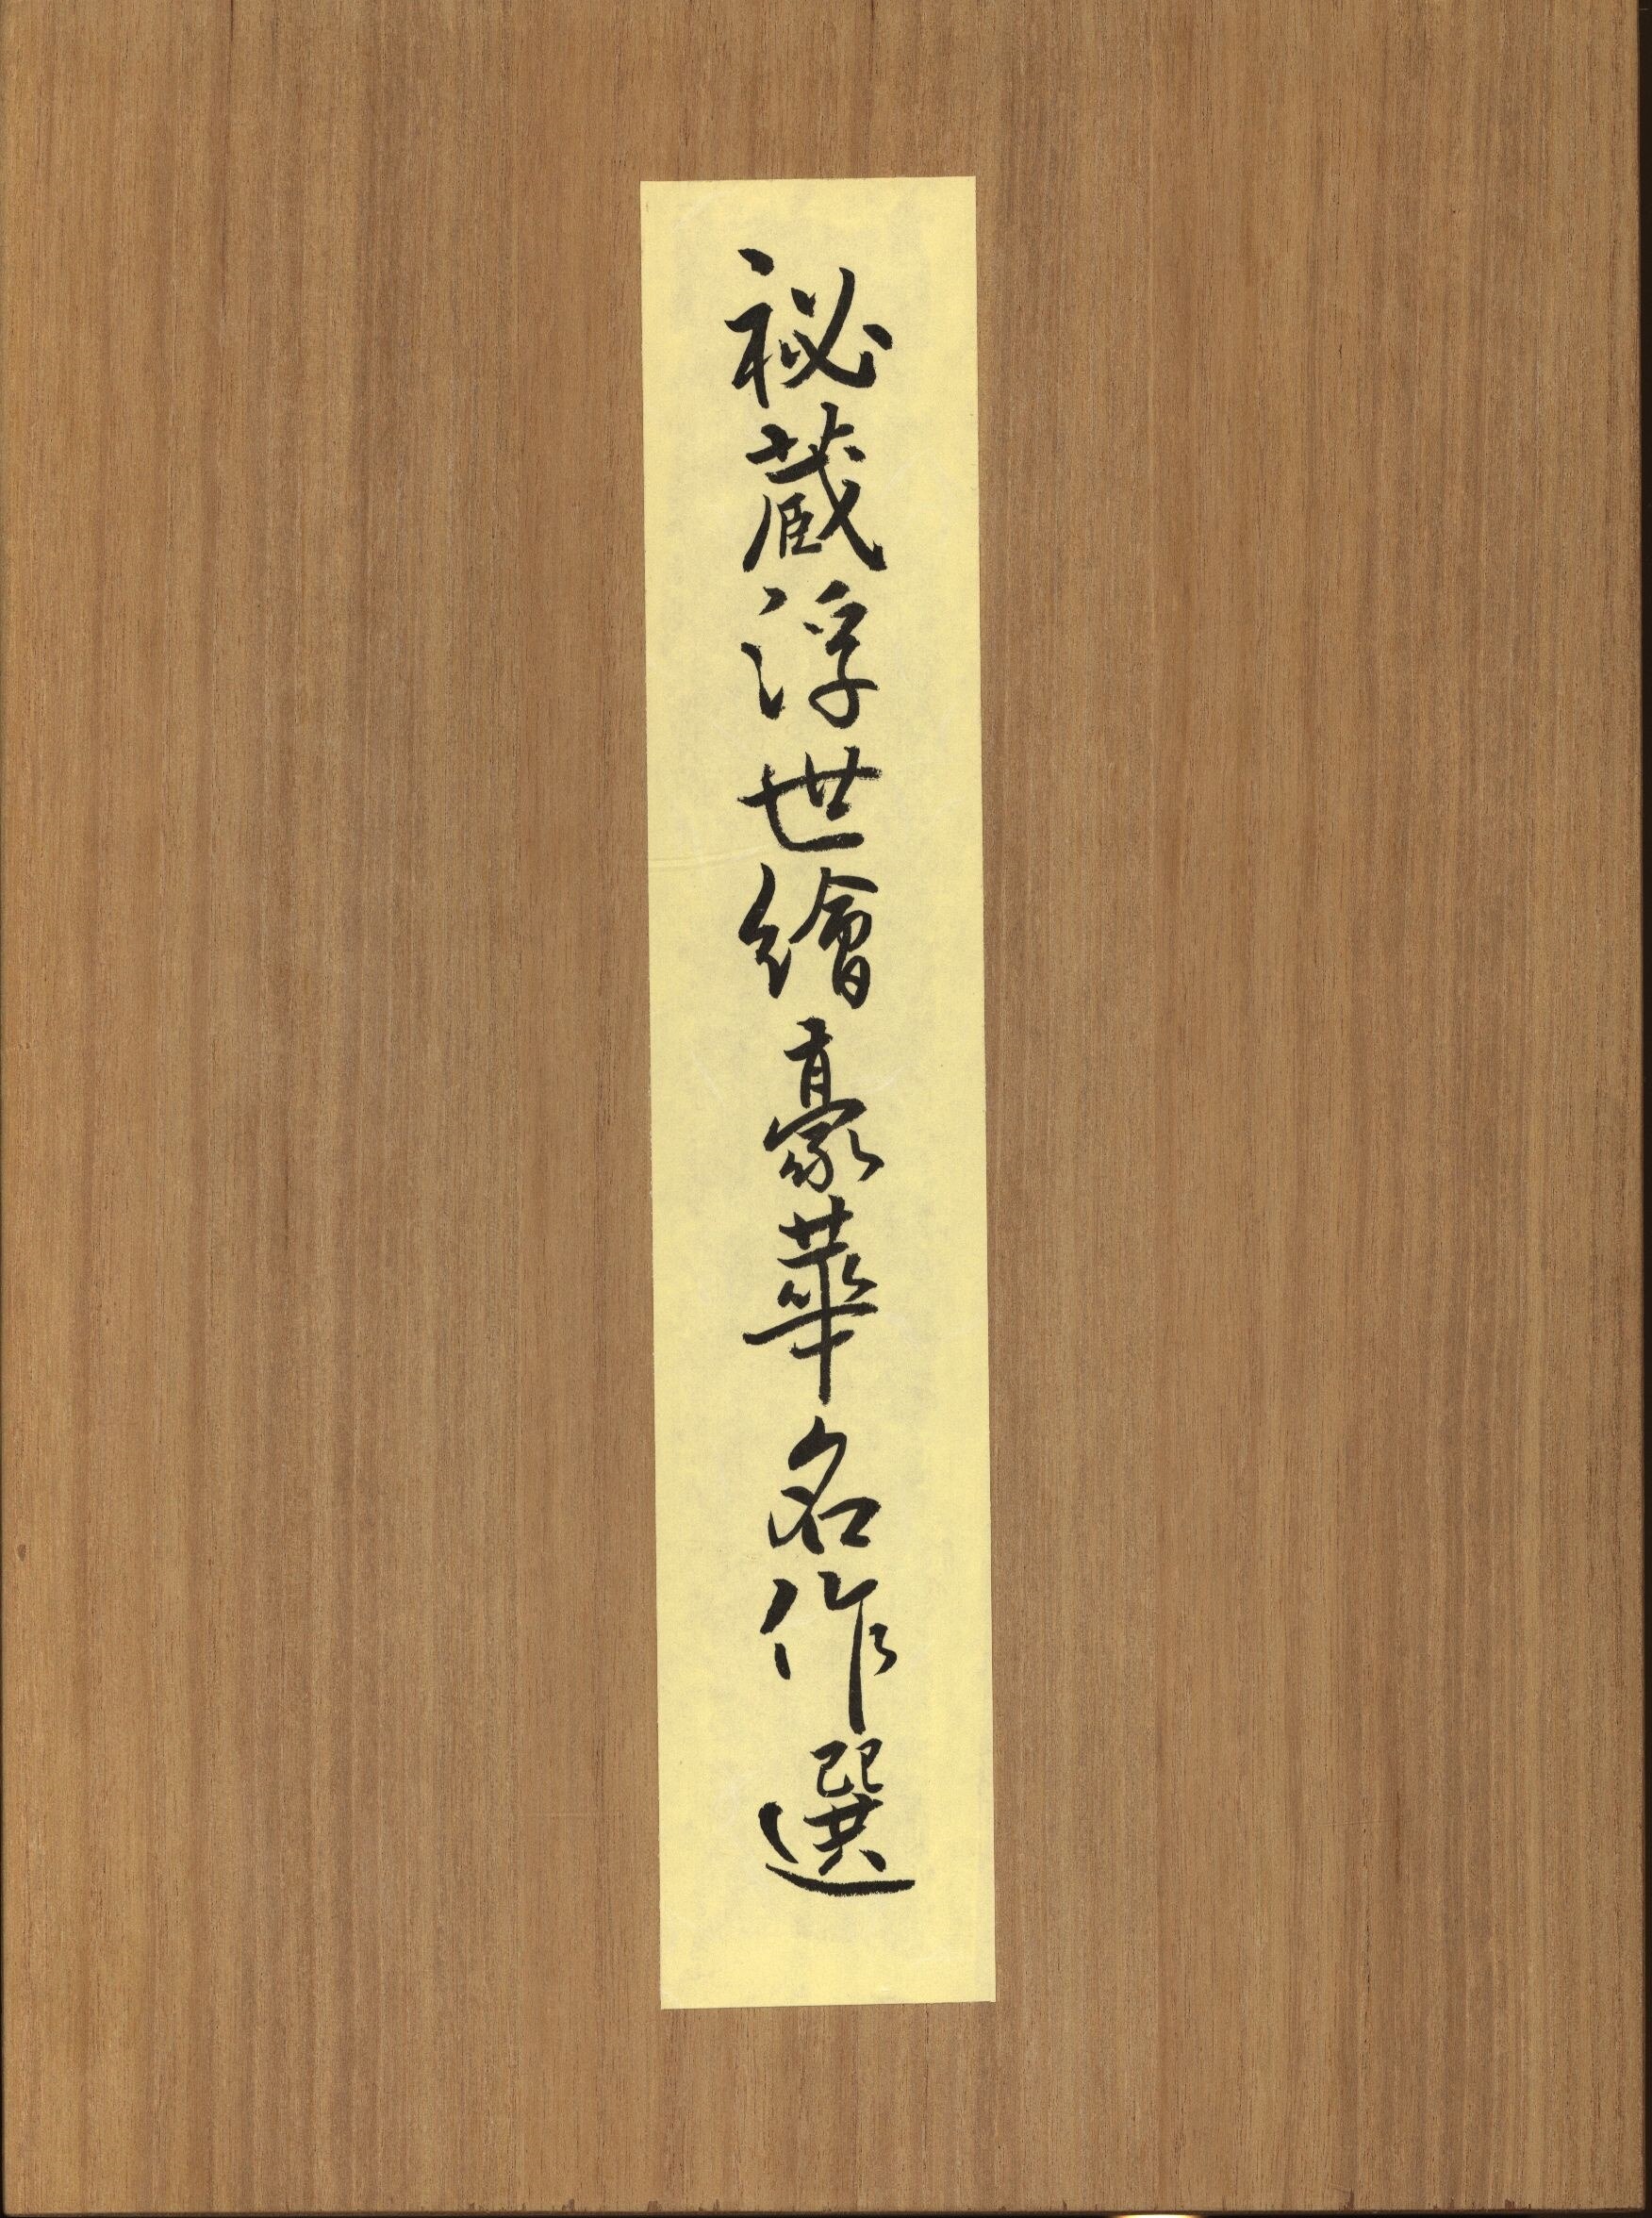 祕蔵浮世繪豪華名作選